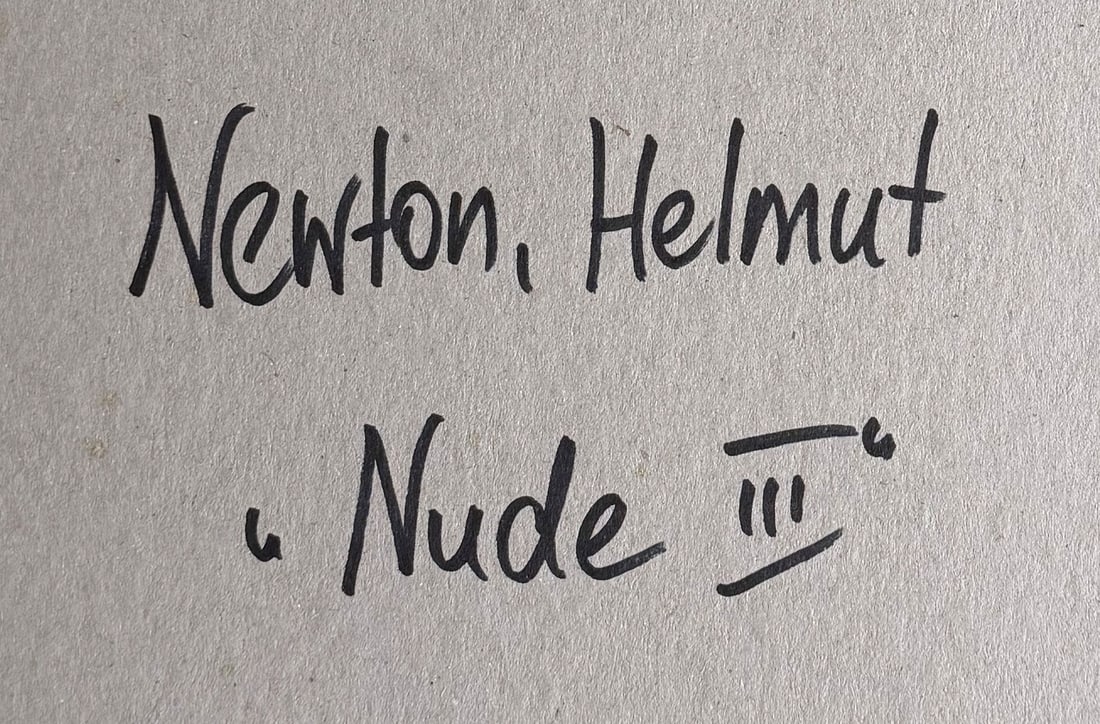 Newton, Helmut
„Nude III“